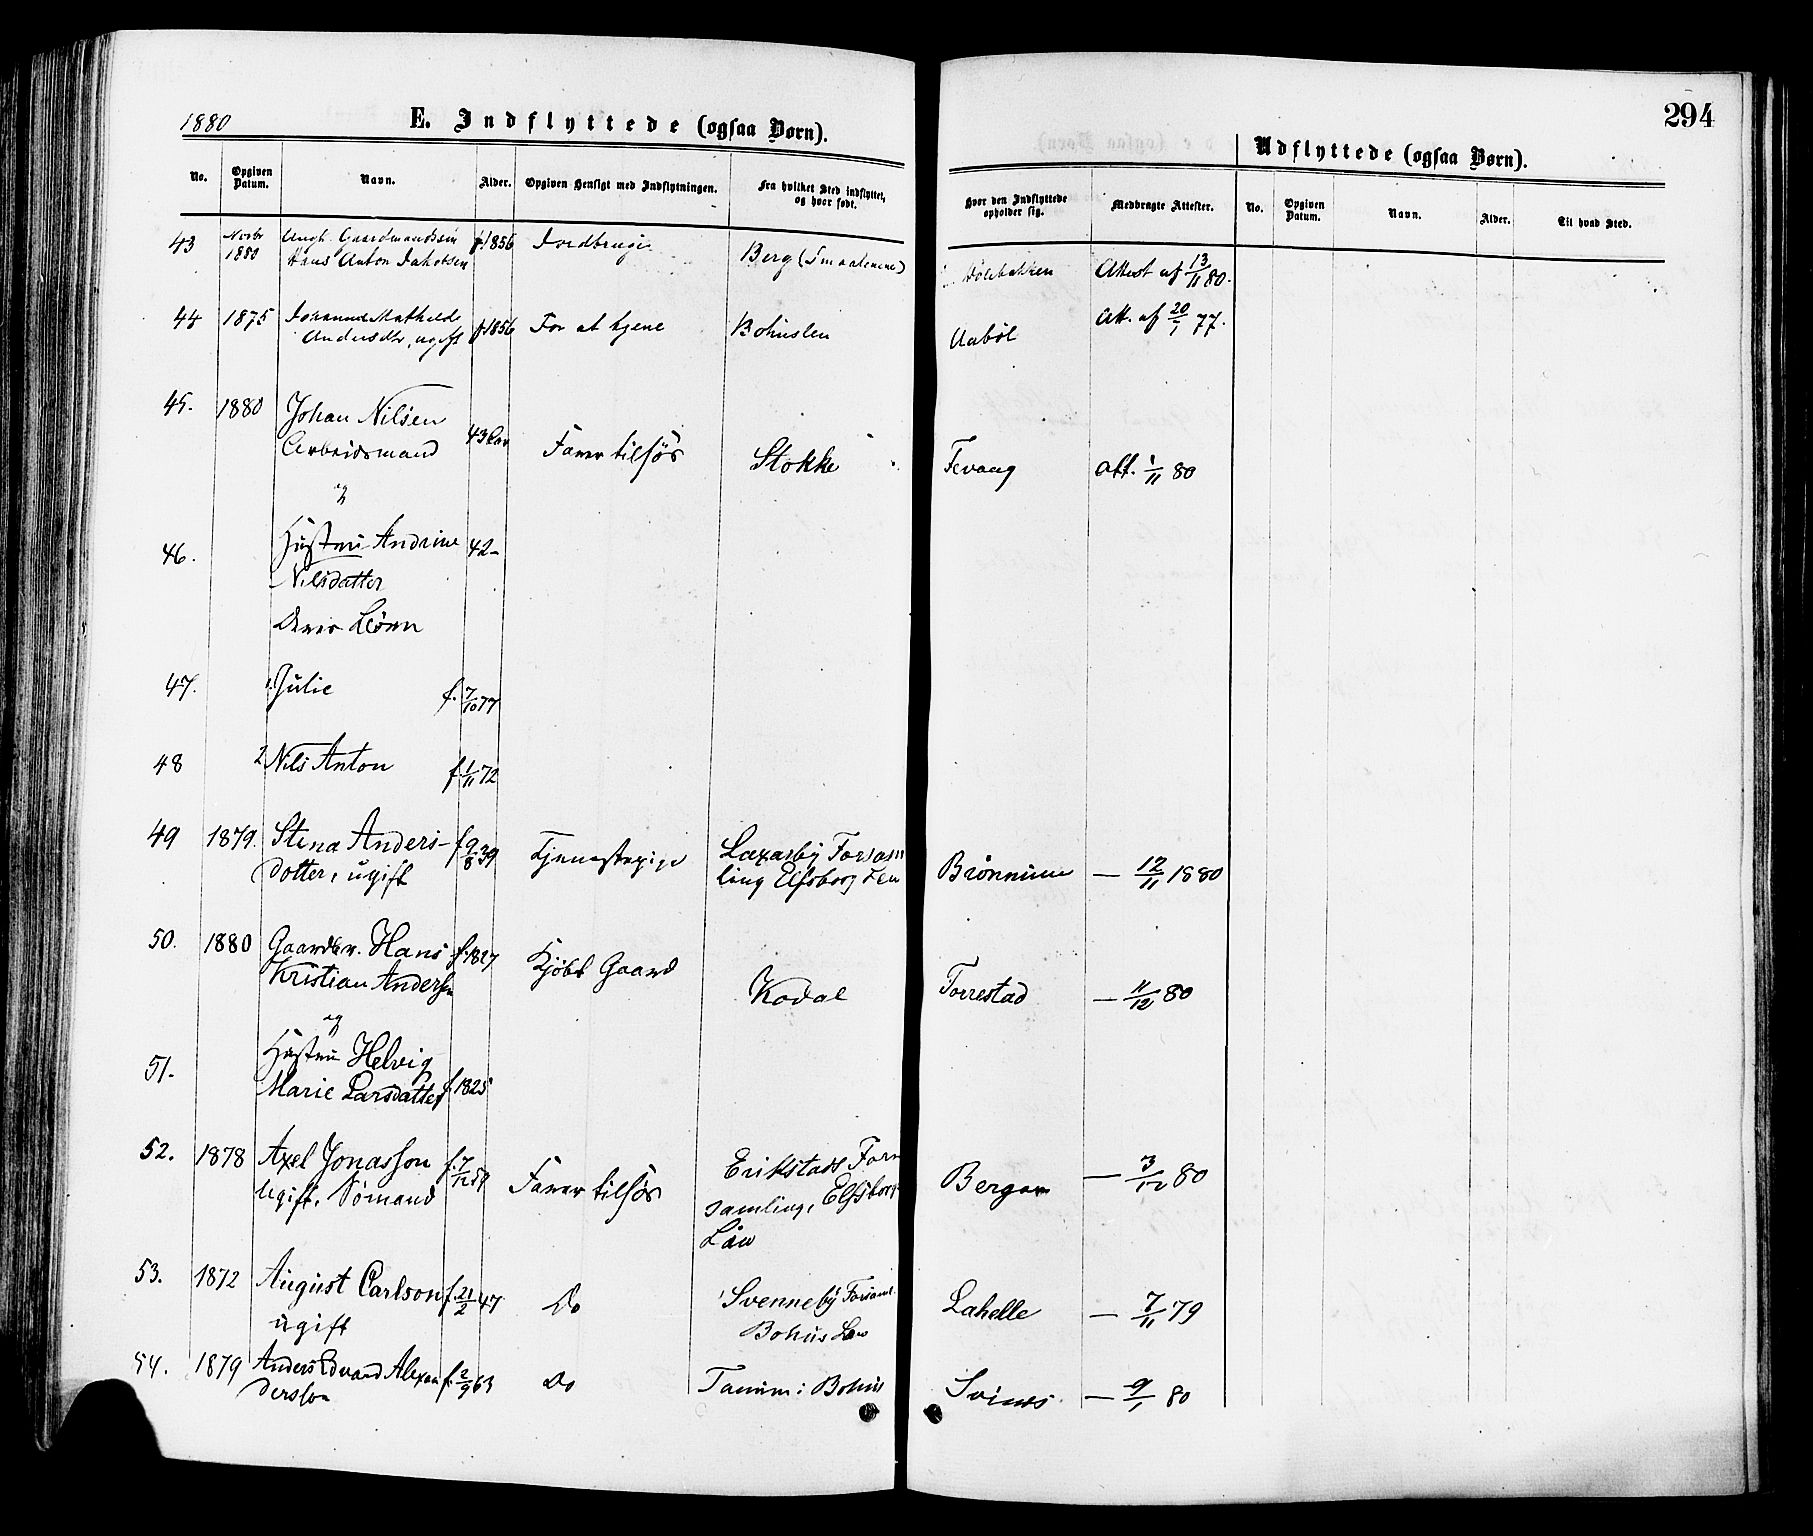 1880
E. Indflyttede (ogsaa Børn).
294
Udflyttede (ogsaa Børn).
No. Opgiven Datum. Navn. Alder. Opgiven Hensigt med Indflytningen. Fra hvilket Sted indflyttet, og hvor født. Hvor den Indflyttede opholder sig. Medbragte Attester. No. Opgiven Datum. Navn. Alder. Til hvad Sted.
43 Novbr 1880 Ungk. Gaardmandssøn f. 1856 Jordbrug Berg (Smaalenene) Attest af 13/11 80.
Hans Anton Jakobsen
44 1875 Johanne Mathilde f. 1856 For at tjene Bohuslen Aabøl Att. af 20/1 77.
Andersdtr, ugift
45. 1880 Johan Nilsen 43 Aar Farer tilsjøs Stokke Tevaag Att. 1/11 80
Arbeidsmand
og
46. Hustru Andrine 42-
Nilsdatter
Deres Børn
47. 1. Julie f. 7/10 77
48 2 Nils Anton f. 1/11 72
49 1879. Stina Anders- f. 9/8 59 Tjenestepige Laxarby Forsam
dotter, ugift ling Elfsborg Len Brønnum — 12/11 1880
50. 1880 Gaardbr. Hans f. 1827 Kjøbt Gaard Kodal Torrestad — 11/12 80
Kristian Andersen
og
51. Hustru Helvig
Marie Larsdatter f. 1825
52. 1878 Axel Jonasson Farer tilsjøs Erikstads For Bergan — 3/12 80
Ugift, Sømand samling, Elfsborgs
Län
53. 1872 August Carlson f. 21/2 47 Do Svenneby Forsaml. Lahelle — 7/11 79
ugift Bohus Län
54. 1879 Anders Edvard Alexan f. 2/9 63 Do Tanum i Bohus Svines — 9/1 80
dersson